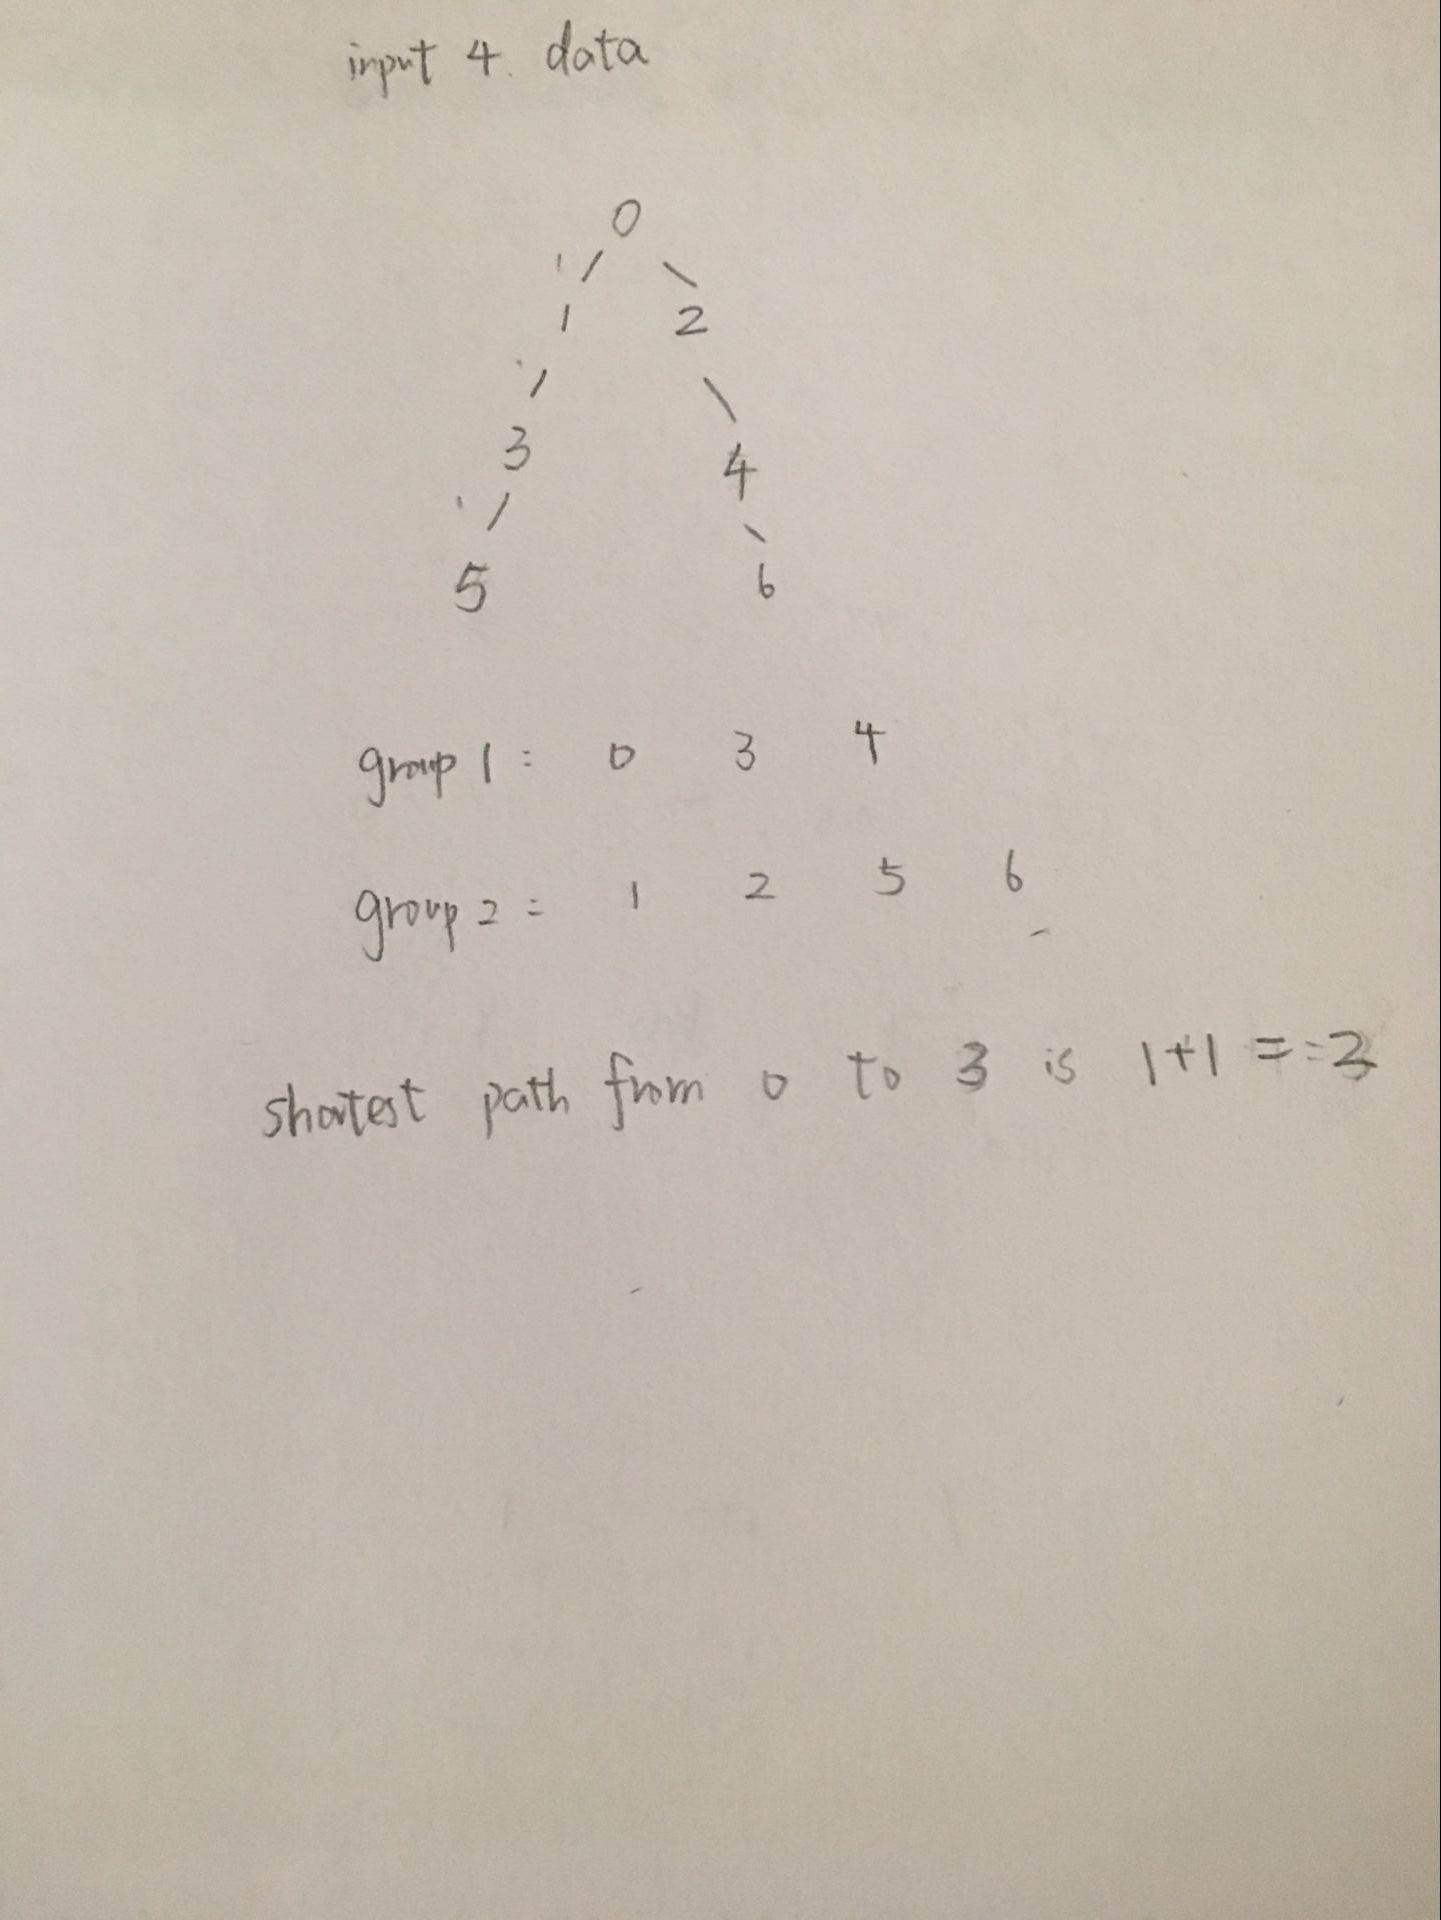 input 4. data
0
1
1 2
3 4
5 6
group 1: 0 3 4
group 2: 1 2 5 6
shortest path from 0 to 3 is 1+1 = =2